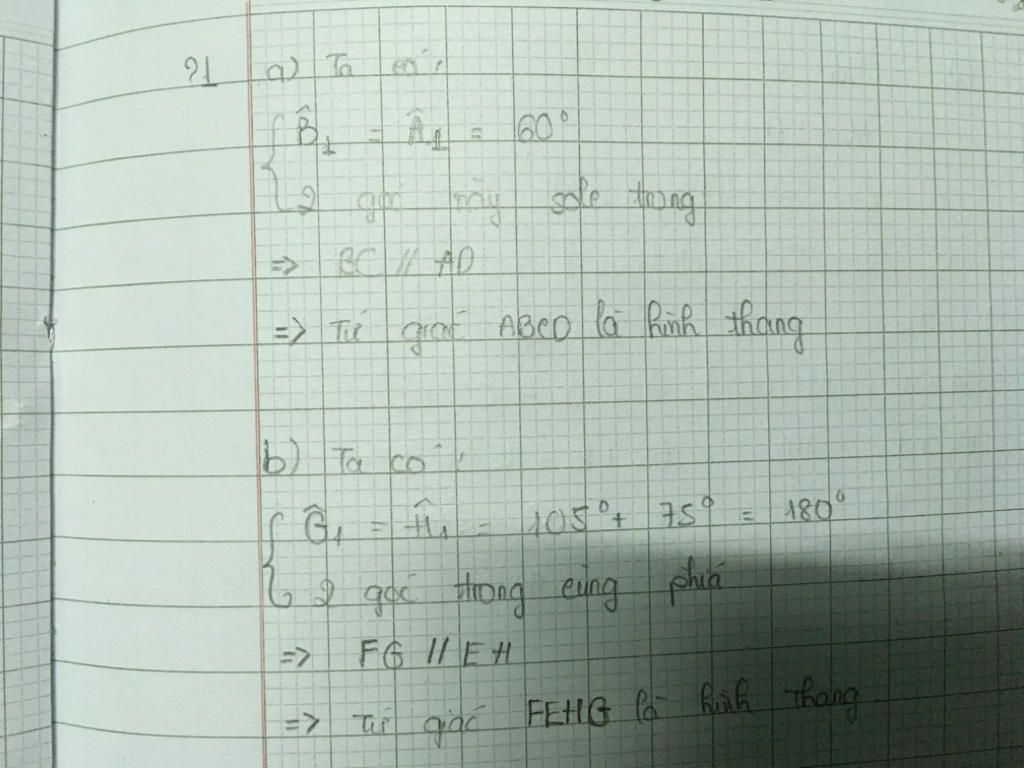 ?1 a) Ta có:
B̂₁ = Â₁ = 60°
2 góc này sole trong
=> BC // AD
=> Tứ giác ABCD là hình thang
b) Ta có:
Ĝ₁ = Ĥ₁ = 105° + 75° = 180°
2 góc trong cùng phía
=> FG // EH
=> Tứ giác FEHG là hình thang